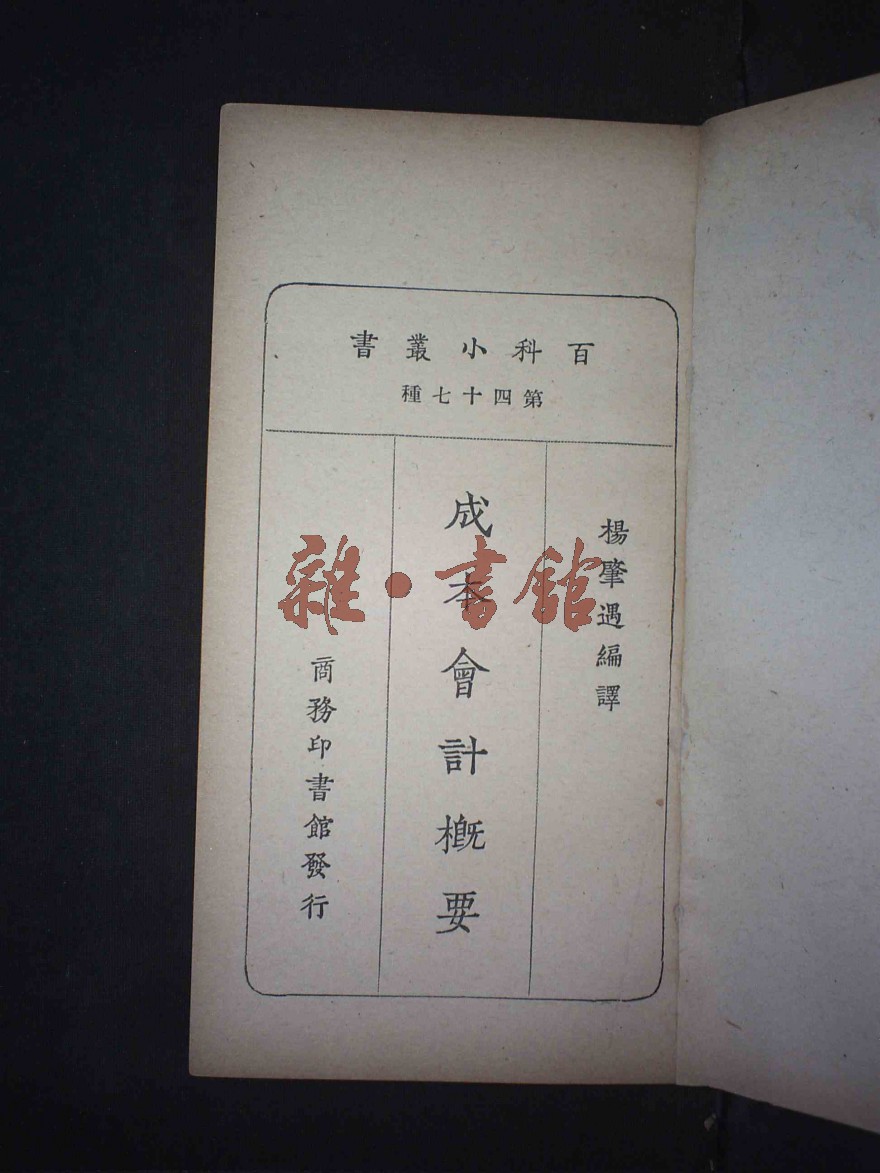 百科小叢書
第四十七種
楊肇遇編譯
成本會計概要
商務印書館發行
雜·書館